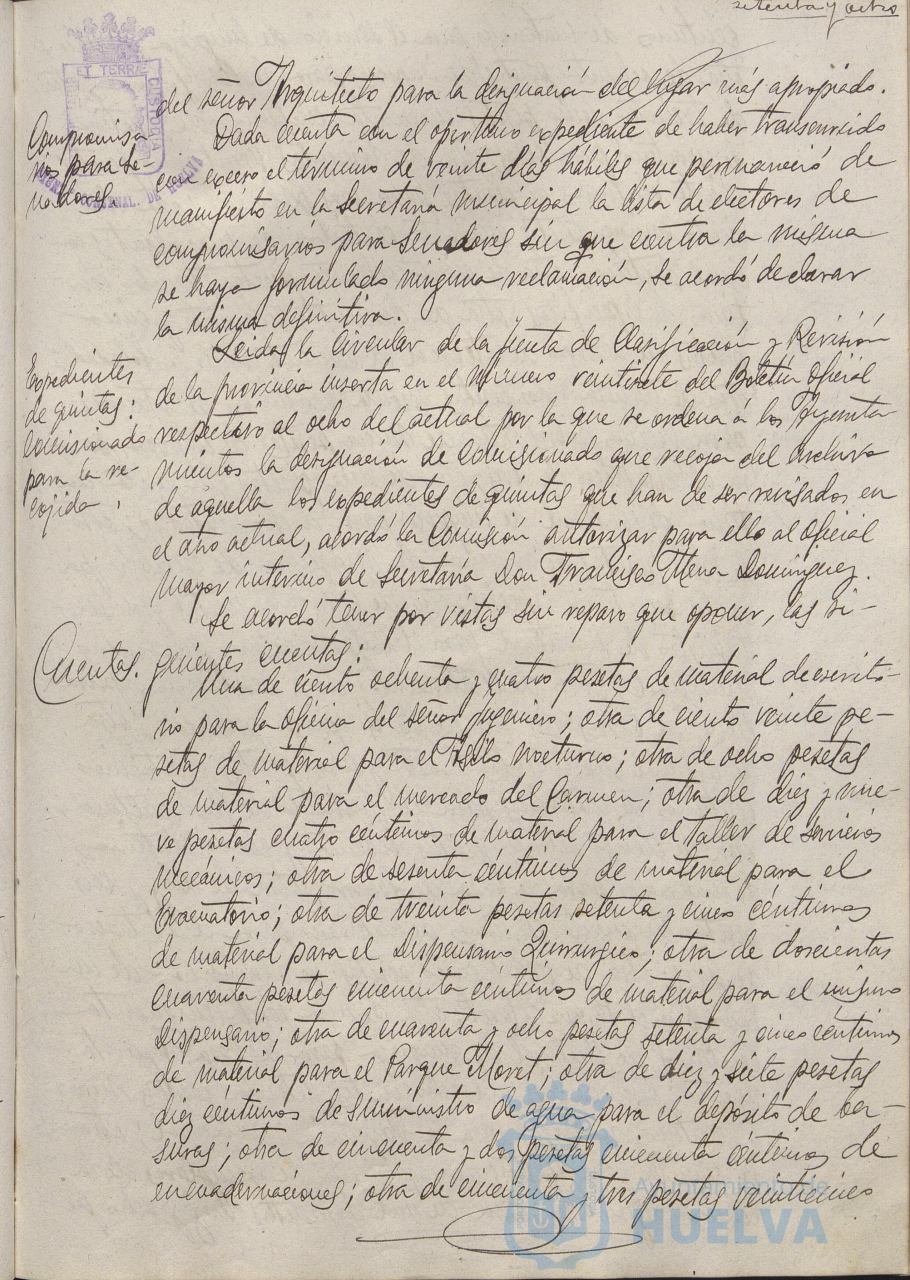 setenta y ocho
del señor Arquitecto para la designación del lugar más apropiado.
Compromisa
rios para Se-
nadores
Dada cuenta con el oportuno expediente de haber transcurrido
con exceso el término de veinte días hábiles que permaneció de
manifiesto en la Secretaría municipal la lista de electores de
compromisarios para Senadores sin que contra la misma
se haya formulado ninguna reclamación, se acordó declarar
la misma definitiva.
Expedientes
de quintas:
Comisionado
para la re-
cojida.
Leida la Circular de la Junta de Clasificación y Revisión
de la provincia inserta en el número veintisiete del Boletín Oficial
respectivo al ocho del actual por la que se ordena á los Ayunta
mientos la designación de Comisionado que recoja del Archivo
de aquella los expedientes de quintas que han de ser revisados en
el año actual, acordó la Comisión autorizar para ello al Oficial
mayor interino de Secretaría Don Francisco Mena Domínguez.
Se acordó tener por vistas sin reparo que oponer, las si-
Cuentas.
guientes cuentas:
Una de ciento ochenta y cuatro pesetas de material de escrito-
rio para la oficina del señor Ingeniero; otra de ciento veinte pe-
setas de material para el Asilo nocturno; otra de ocho pesetas
de material para el mercado del Carmen; otra de diez y nue-
ve pesetas cuatro céntimos de material para el taller de servicios
mecánicos; otra de sesenta céntimos de material para el
Evacuatorio; otra de treinta pesetas setenta y cinco céntimos
de material para el Dispensario Quirurgico; otra de doscientas
cuarenta pesetas cincuenta céntimos de material para el mismo
Dispensario; otra de cuarenta y ocho pesetas setenta y cinco céntimos
de material para el Parque Moret; otra de diez y siete pesetas
diez céntimos de suministro de agua para el depósito de ba-
suras; otra de cincuenta y dos pesetas cincuenta céntimos de
encuadernaciones; otra de cincuenta y tres pesetas veinticinco
Ayuntamiento de
HUELVA